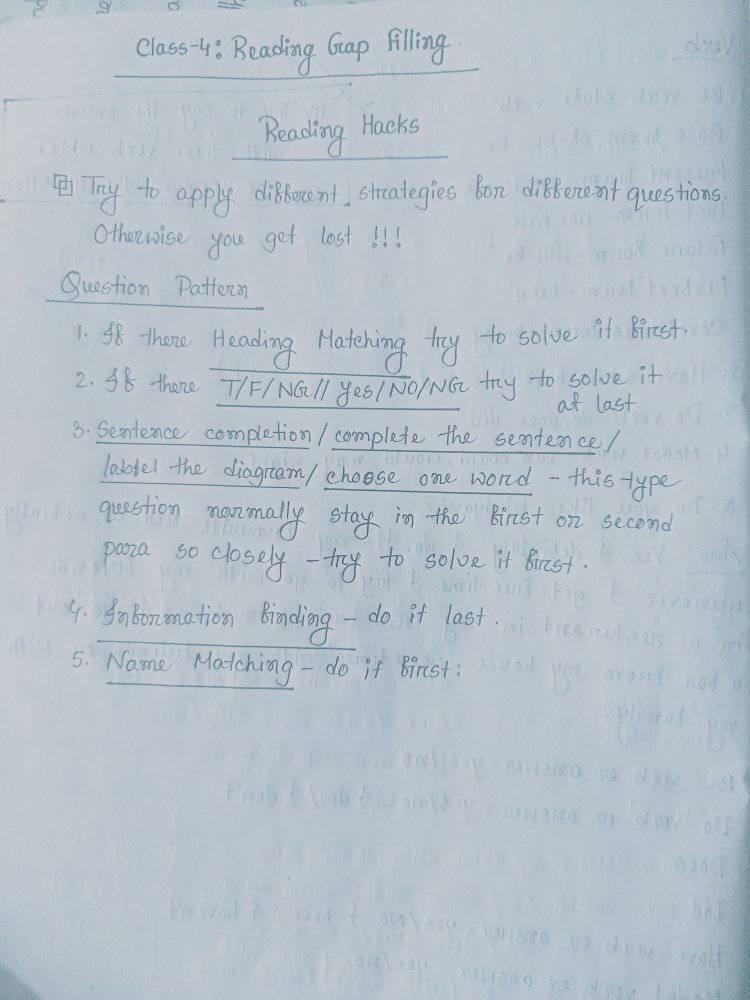 Class-4: Reading Gap filling.
Reading Hacks
Try to apply different strategies for different questions.
Otherwise you get lost !!!
Question Pattern
1. If there Heading Matching try to solve it first.
2. If there T/F/NG // Yes/NO/NG try to solve it
at last
3. Sentence completion / complete the sentence /
label the diagram / choose one word - this type
question normally stay in the first or second
para so closely - try to solve it first.
4. Information finding - do it last.
5. Name Matching - do it first: